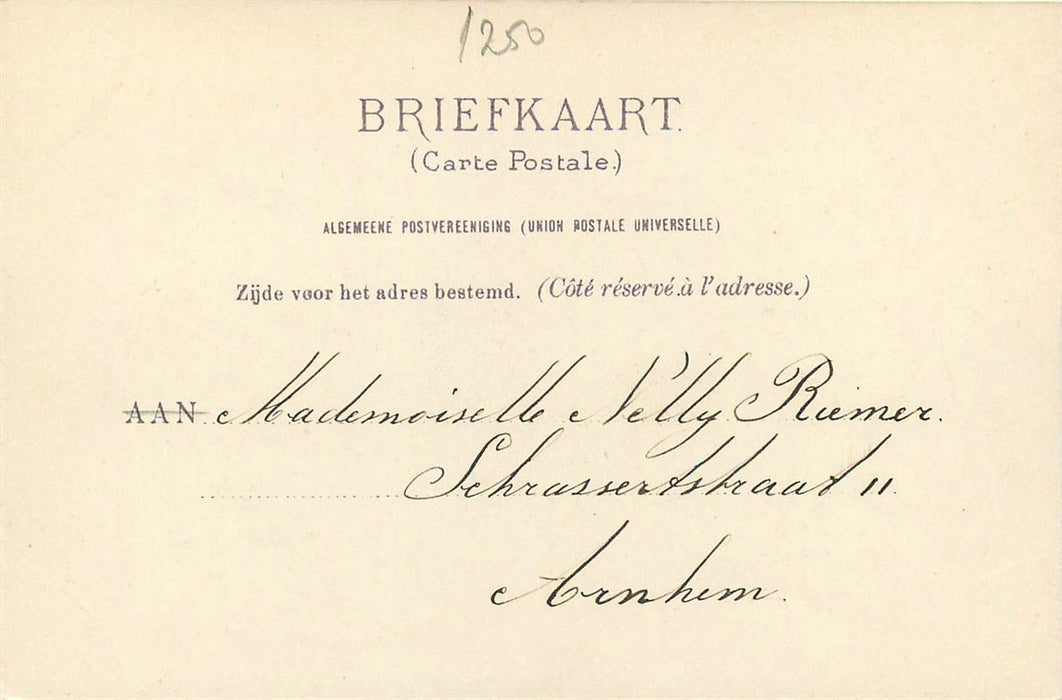 1250
BRIEFKAART.
(Carte Postale.)
ALGEMEENE POSTVEREENIGING (UNION POSTALE UNIVERSELLE)
Zijde voor het adres bestemd. (Côté réservé à l'adresse.)
AAN Mademoiselle Nelly Riemer.
Schrassertstraat 11.
Arnhem.